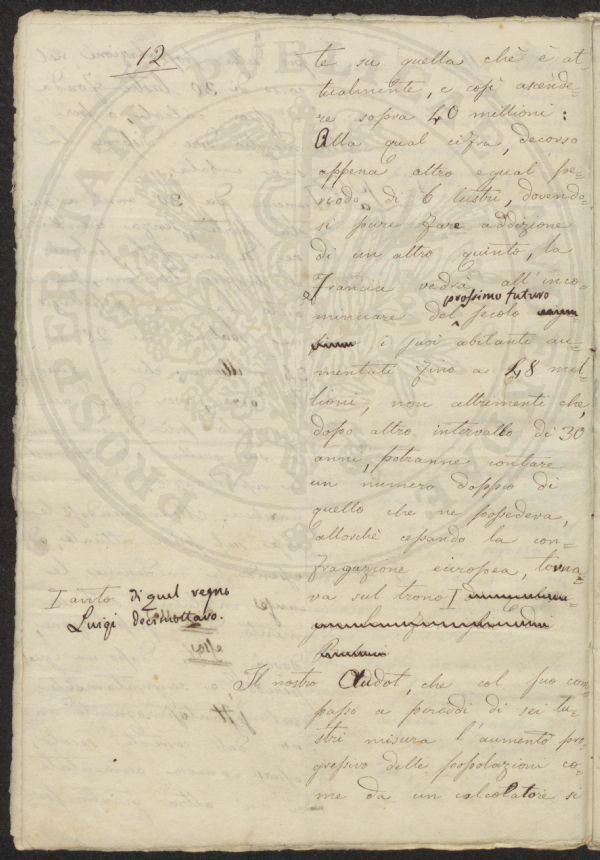 12
te su quella chè è at-
tualmente, e così ascende-
re sopra 40 millioni:
Alla qual cifra, decorso
appena altro egual pe-
riodo di 6 lustri, dovendo-
si pure fare addizione
di un altro quinto, la
Francia vedrà all'inco-
minciare del secolo
prossimo futuro
i suoi abitanti au-
mentati fino a 48 mil-
lioni, non altrimenti che,
dopo altro intervallo di 30
anni, potranne contare
un numero doppio di
quello che ne possedeva,
allorchè cessando la con-
flagrazione europea, torna-
va sul trono I
I avito di quel regno
Luigi decimottavo.
Il nostro Audot, che col suo com-
passo a periodi di sei lu-
stri misura l'aumento pro-
gressivo delle popolazioni co-
me da un calcolatore si
PROSPERITATI PVBLICAE